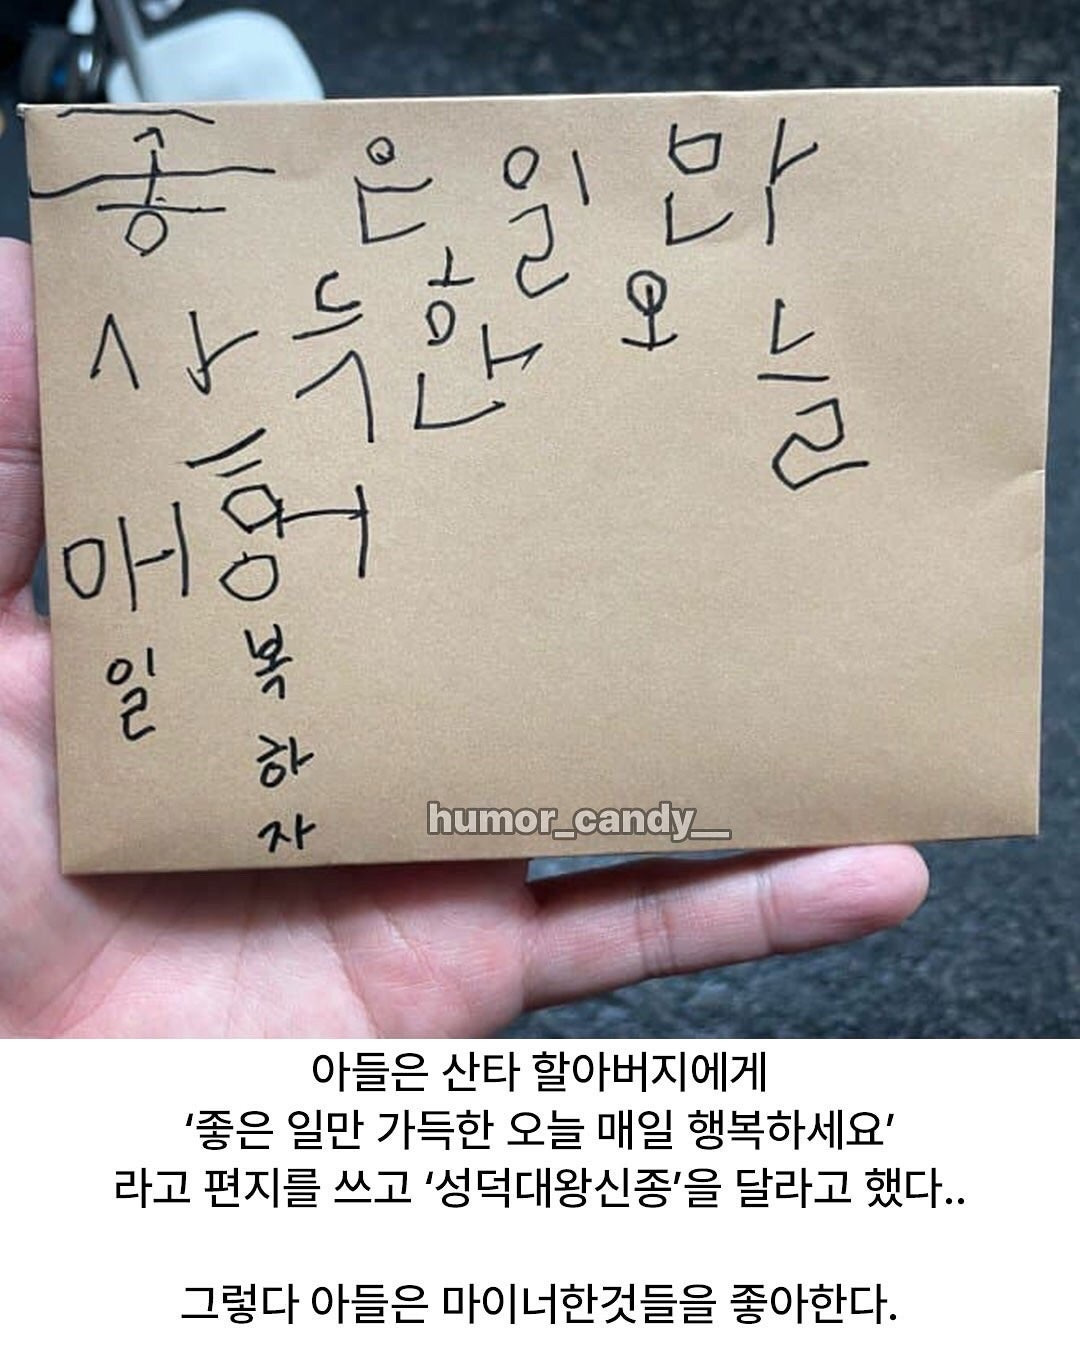 좋은 일만
가득한 오늘
매일
행복하자
humor_candy__
아들은 산타 할아버지에게
‘좋은 일만 가득한 오늘 매일 행복하세요’
라고 편지를 쓰고 ‘성덕대왕신종’을 달라고 했다..
그렇다 아들은 마이너한것들을 좋아한다.